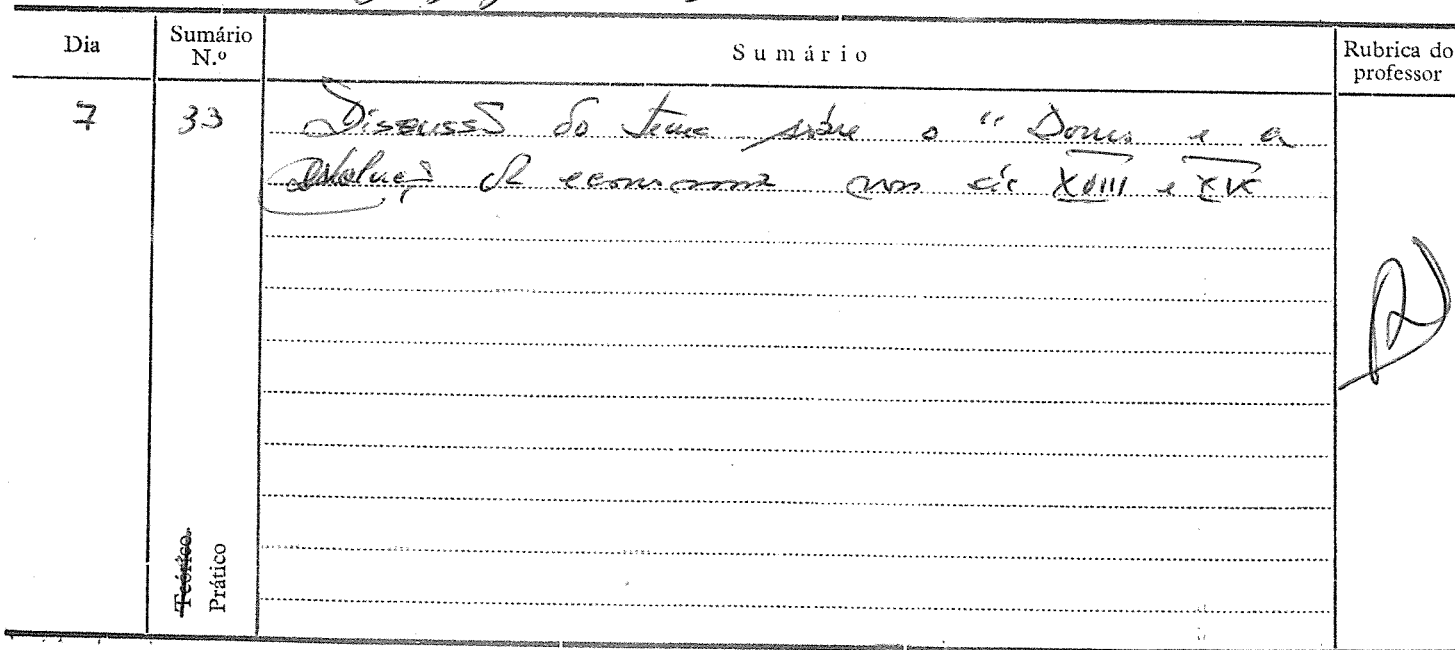 Dia
Sumário N.º
Sumário
Rubrica do professor
7
33
Discussão do tema sobre o " Douro e a
evolução da economia nos séc XVIII e XIX
Teórico
Prático